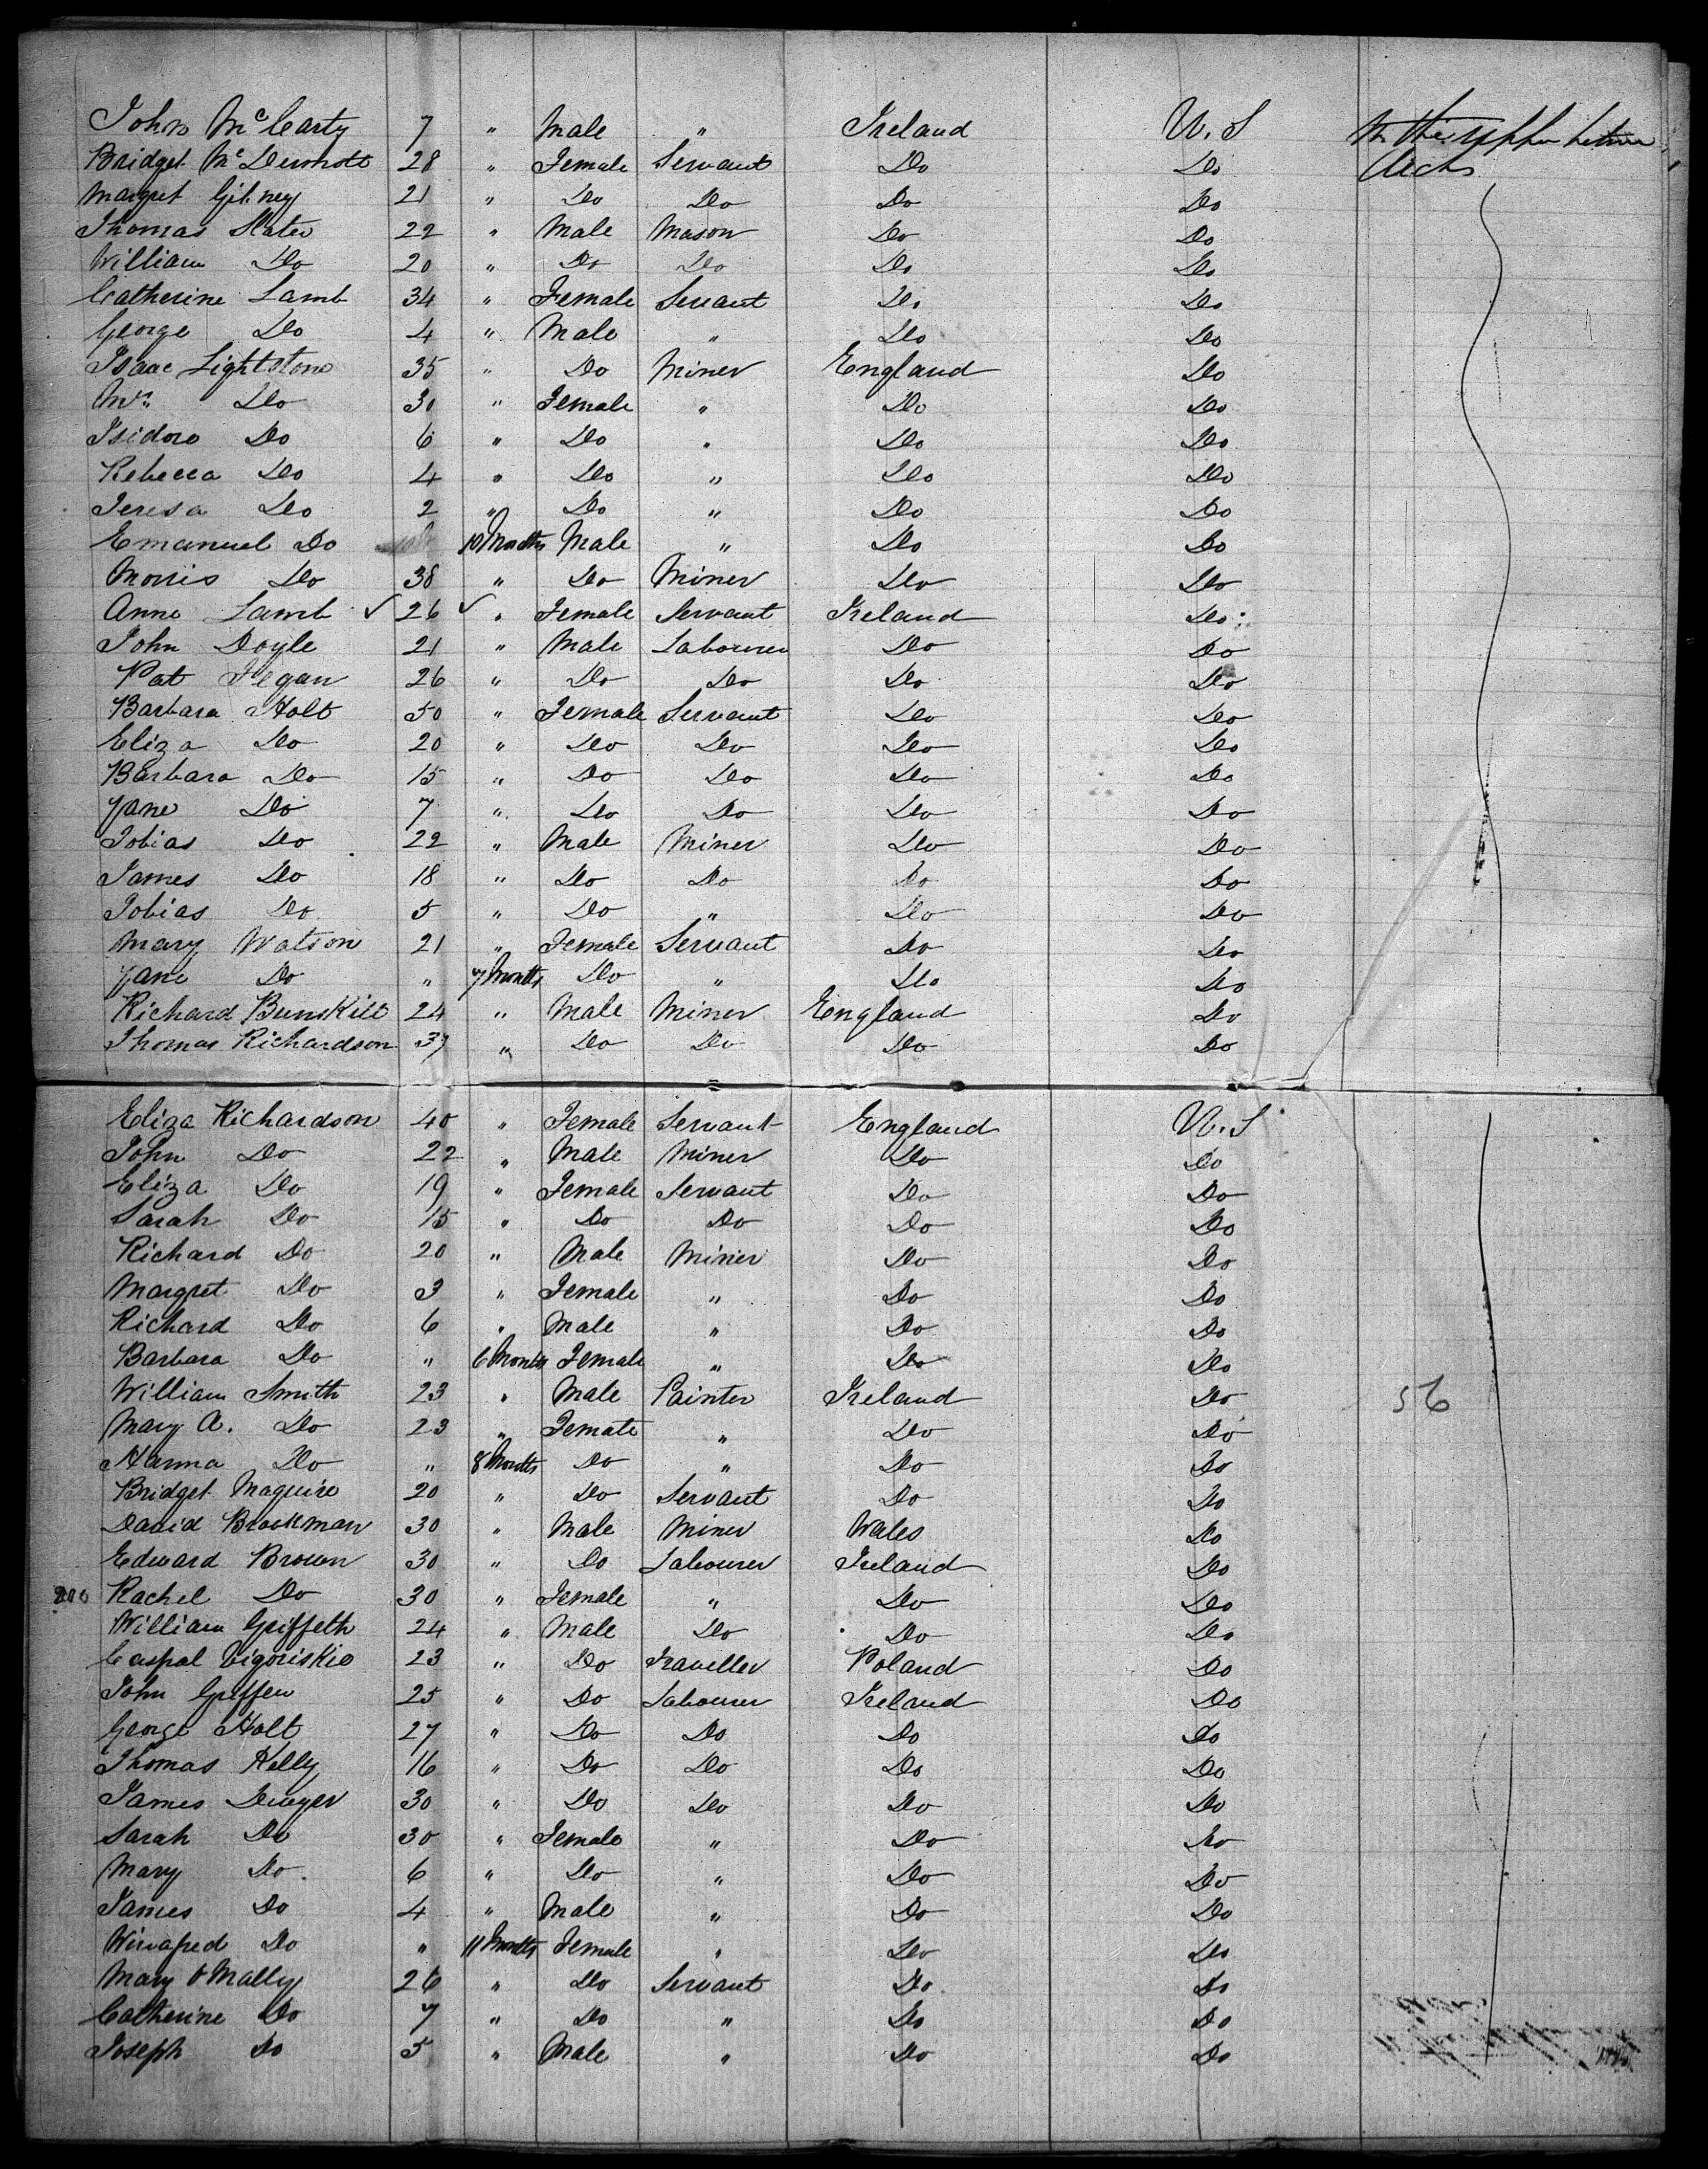 John McCarty 7 " Male " Ireland U.S In the upper between
Bridget McDermott 28 " Female Servant Do Do decks
Margret Gibney 21 " Do Do Do Do
Thomas Slater 22 " Male Mason Do Do
William Do 20 " Do Do Do Do
Catherine Lamb 34 " Female Servant Do Do
George Do 4 " Male " Do Do
Isaac Lightstone 35 " Do Miner England Do
Mrs Do 30 " Female " Do Do
Isidore Do 6 " Do " Do Do
Rebecca Do 4 " Do " Do Do
Teresa Do 2 " Do " Do Do
Emanuel Do 10 Months Male " Do Do
Morris Do 38 " Do Miner Do Do
Anne Lamb ✓ 26 ✓ " Female Servant Ireland Do
John Doyle 21 " Male Labourer Do Do
Pat Fegan 26 " Do Do Do Do
Barbara Holt 50 " Female Servant Do Do
Eliza Do 20 " Do Do Do Do
Barbara Do 15 " Do Do Do Do
Jane Do 7 " Do Do Do Do
Tobias Do 22 " Male Miner Do Do
James Do 18 " Do Do Do Do
Tobias Do 5 " Do " Do Do
Mary Watson 21 " Female Servant Do Do
Jane Do " 7 Months Do " Do Do
Richard Bunskill 24 " Male Miner England Do
Thomas Richardson 37 " Do Do Do Do
Eliza Richardson 40 " Female Servant England U.S
John Do 22 " Male Miner Do Do
Eliza Do 19 " Female Servant Do Do
Sarah Do 15 " Do Do Do Do
Richard Do 20 " Male Miner Do Do
Margret Do 3 " Female " Do Do
Richard Do 6 " Male " Do Do
Barbara Do " 6 Months Female " Do Do
William Smith 23 " Male Painter Ireland Do 56
Mary A. Do 23 " Female " Do Do
Hanna Do " 8 Months Do " Do Do
Bridget Maguire 20 " Do Servant Do Do
David Brookman 30 " Male Miner Wales Do
Edward Brown 30 " Do Labourer Ireland Do
200 Rachel Do 30 " Female " Do Do
William Griffeth 24 " Male Do Do Do
23 " Do Traveller Poland Do
John Griffen 25 " Do Labourer Ireland Do
George Holt 27 " Do Do Do Do
Thomas Kelly 16 " Do Do Do Do
James Dwyer 30 " Do Do Do Do
Sarah Do 30 " Female " Do Do
Mary Do 6 " Do " Do Do
James Do 4 " Male " Do Do
Winafred Do " 11 Months Female " Do Do
Mary O Mally 26 " Do Servant Do Do
Catherine Do 7 " Do " Do Do
Joseph Do 5 " Male " Do Do